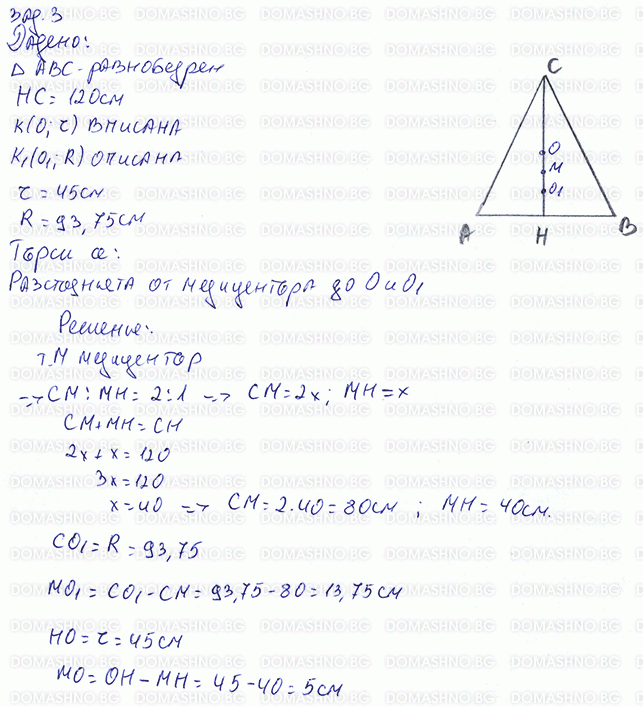 Зад. 3
Дадено:
△ ABC - равнобедрен
HC = 120см
K(O; r) вписана
K₁(O₁; R) описана
r = 45см
R = 93,75см
Търси се:
Разстоянията от медицентъра до O и O₁
Решение:
т. M медицентър
→ CM : MH = 2:1 → CM = 2x ; MH = x
CM + MH = CH
2x + x = 120
3x = 120
x = 40 => CM = 2.40 = 80см ; MH = 40см.
CO₁ = R = 93,75
MO₁ = CO₁ - CM = 93,75 - 80 = 13,75см
HO = r = 45см
MO = OH - MH = 45 - 40 = 5см
C
O
M
O₁
A
H
B
DOMASHNO.BG